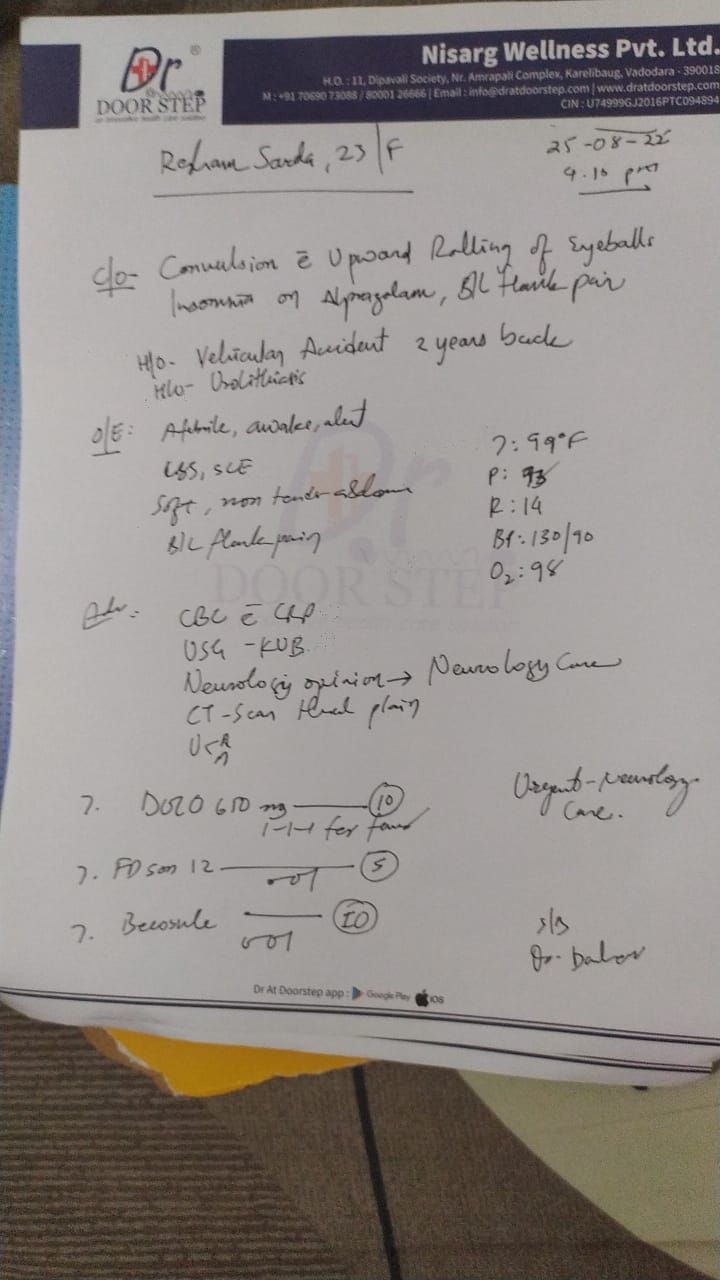 Dr
DOOR STEP
Nisarg Wellness Pvt. Ltd.
H.O. : 11, Dipavali Society, Nr. Amrapali Complex, Karelibaug, Vadodara - 390018
M : +91 70690 73088 / 80001 26666 | Email : info@dratdoorstep.com | www.dratdoorstep.com
CIN : U74999GJ2016PTC094894
Sarda, 23/F
25-08-22
4.10 pm
C/o- Convulsion c̄ Upward Rolling of Eyeballs
Insomnia on Alprazolam, B/L flank pain
H/o- Vehicular Accident 2 years back
H/o- Urolithiasis
O/E: Afebrile, awake, alert
T: 99°F
P: 93
R: 14
BP: 130/90
O2: 98
soft, non tender abdomen
B/L flank pain
DOOR STEP
Adv:
CBC c̄ CRP
USG - KUB
Neurology opinion → Neurology Care
CT-Scan Head plain
Urgent - Neurology
Care.
T. DOLO 650 mg 10
1-1-1 for fever
T. FDson 12 5
001
T. Becosule 10
001
s/b
Dr At Doorstep app : Google Play iOS